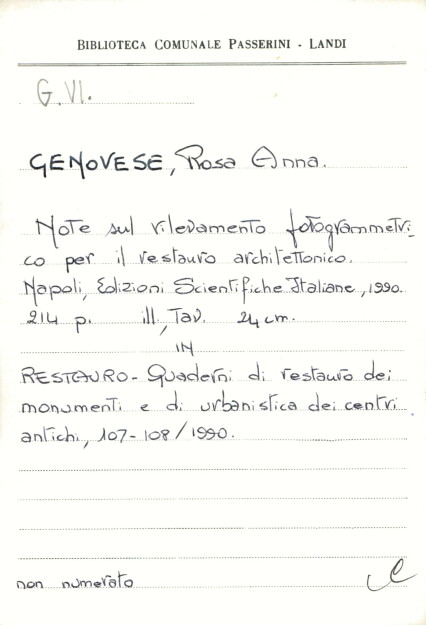 BIBLIOTECA COMUNALE PASSERINI - LANDI
G.VI.
GENOVESE, Rosa Anna.
Note sul rilevamento fotogrammetri-
co per il restauro architettonico.
Napoli, Edizioni Scientifiche Italiane, 1990.
214 p. ill., Tav. 24 cm.
IN
RESTAURO - Quaderni di restauro dei
monumenti e di urbanistica dei centri
antichi, 107-108/1990.
non numerato